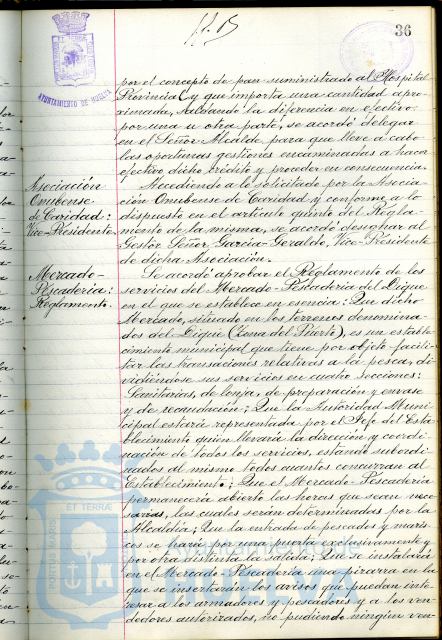 36
AYUNTAMIENTO DE HUELVA
por el concepto de pan suministrado al Hospital
Provincial y que importa una cantidad apro-
ximada, saldando la diferencia en efectivo
por una u otra parte, se acordó delegar
en el Señor Alcalde para que lleve a cabo
las oportunas gestiones encaminadas a hacer
efectivo dicho crédito y proceder en consecuencia.
Asociación
Onubense
de Caridad:
Vice-Presidente
Accediendo a lo solicitado por la Asocia-
ción Onubense de Caridad y conforme a lo
dispuesto en el artículo quinto del Regla-
mento de la misma, se acordó designar al
Gestor Señor Garcia-Geraldo, Vice-Presidente
de dicha Asociación.
Mercado-
Pescadería:
Reglamento.
Se acordó aprobar el Reglamento de los
servicios del Mercado-Pescadería del Dique
en el que se establece en esencia: Que dicho
Mercado, situado en los terrenos denomina-
dos del Dique (Zona del Puerto), es un estable-
cimiento municipal que tiene por objeto facili-
tar las transaciones relativas a la pesca, di-
vidiéndose sus servicios en cuatro secciones:
Sanitarias, de lonja, de preparación y envase
y de recaudación; Que la Autoridad Muni-
cipal estará representada por el Jefe del Esta-
blecimiento quien llevará la dirección y coordi-
nación de todos los servicios, estando subordi-
nados al mismo todos cuantos concurran al
Establecimiento; Que el Mercado-Pescadería
permanecerá abierto las horas que sean nece-
sarias, las cuales serán determinadas por la
Alcaldía; Que la entrada de pescados y maris-
cos se hará por una puerta exclusivamente y
por otra distinta la salida; Que se instalará
en el Mercado-Pescadería una pizarra en la
que se insertarán los avisos que puedan inte-
resar a los armadores y pescadores y a los ven-
dedores autorizados, no pudiendo ningún ven-
PORTUS MARIS ET TERRAE